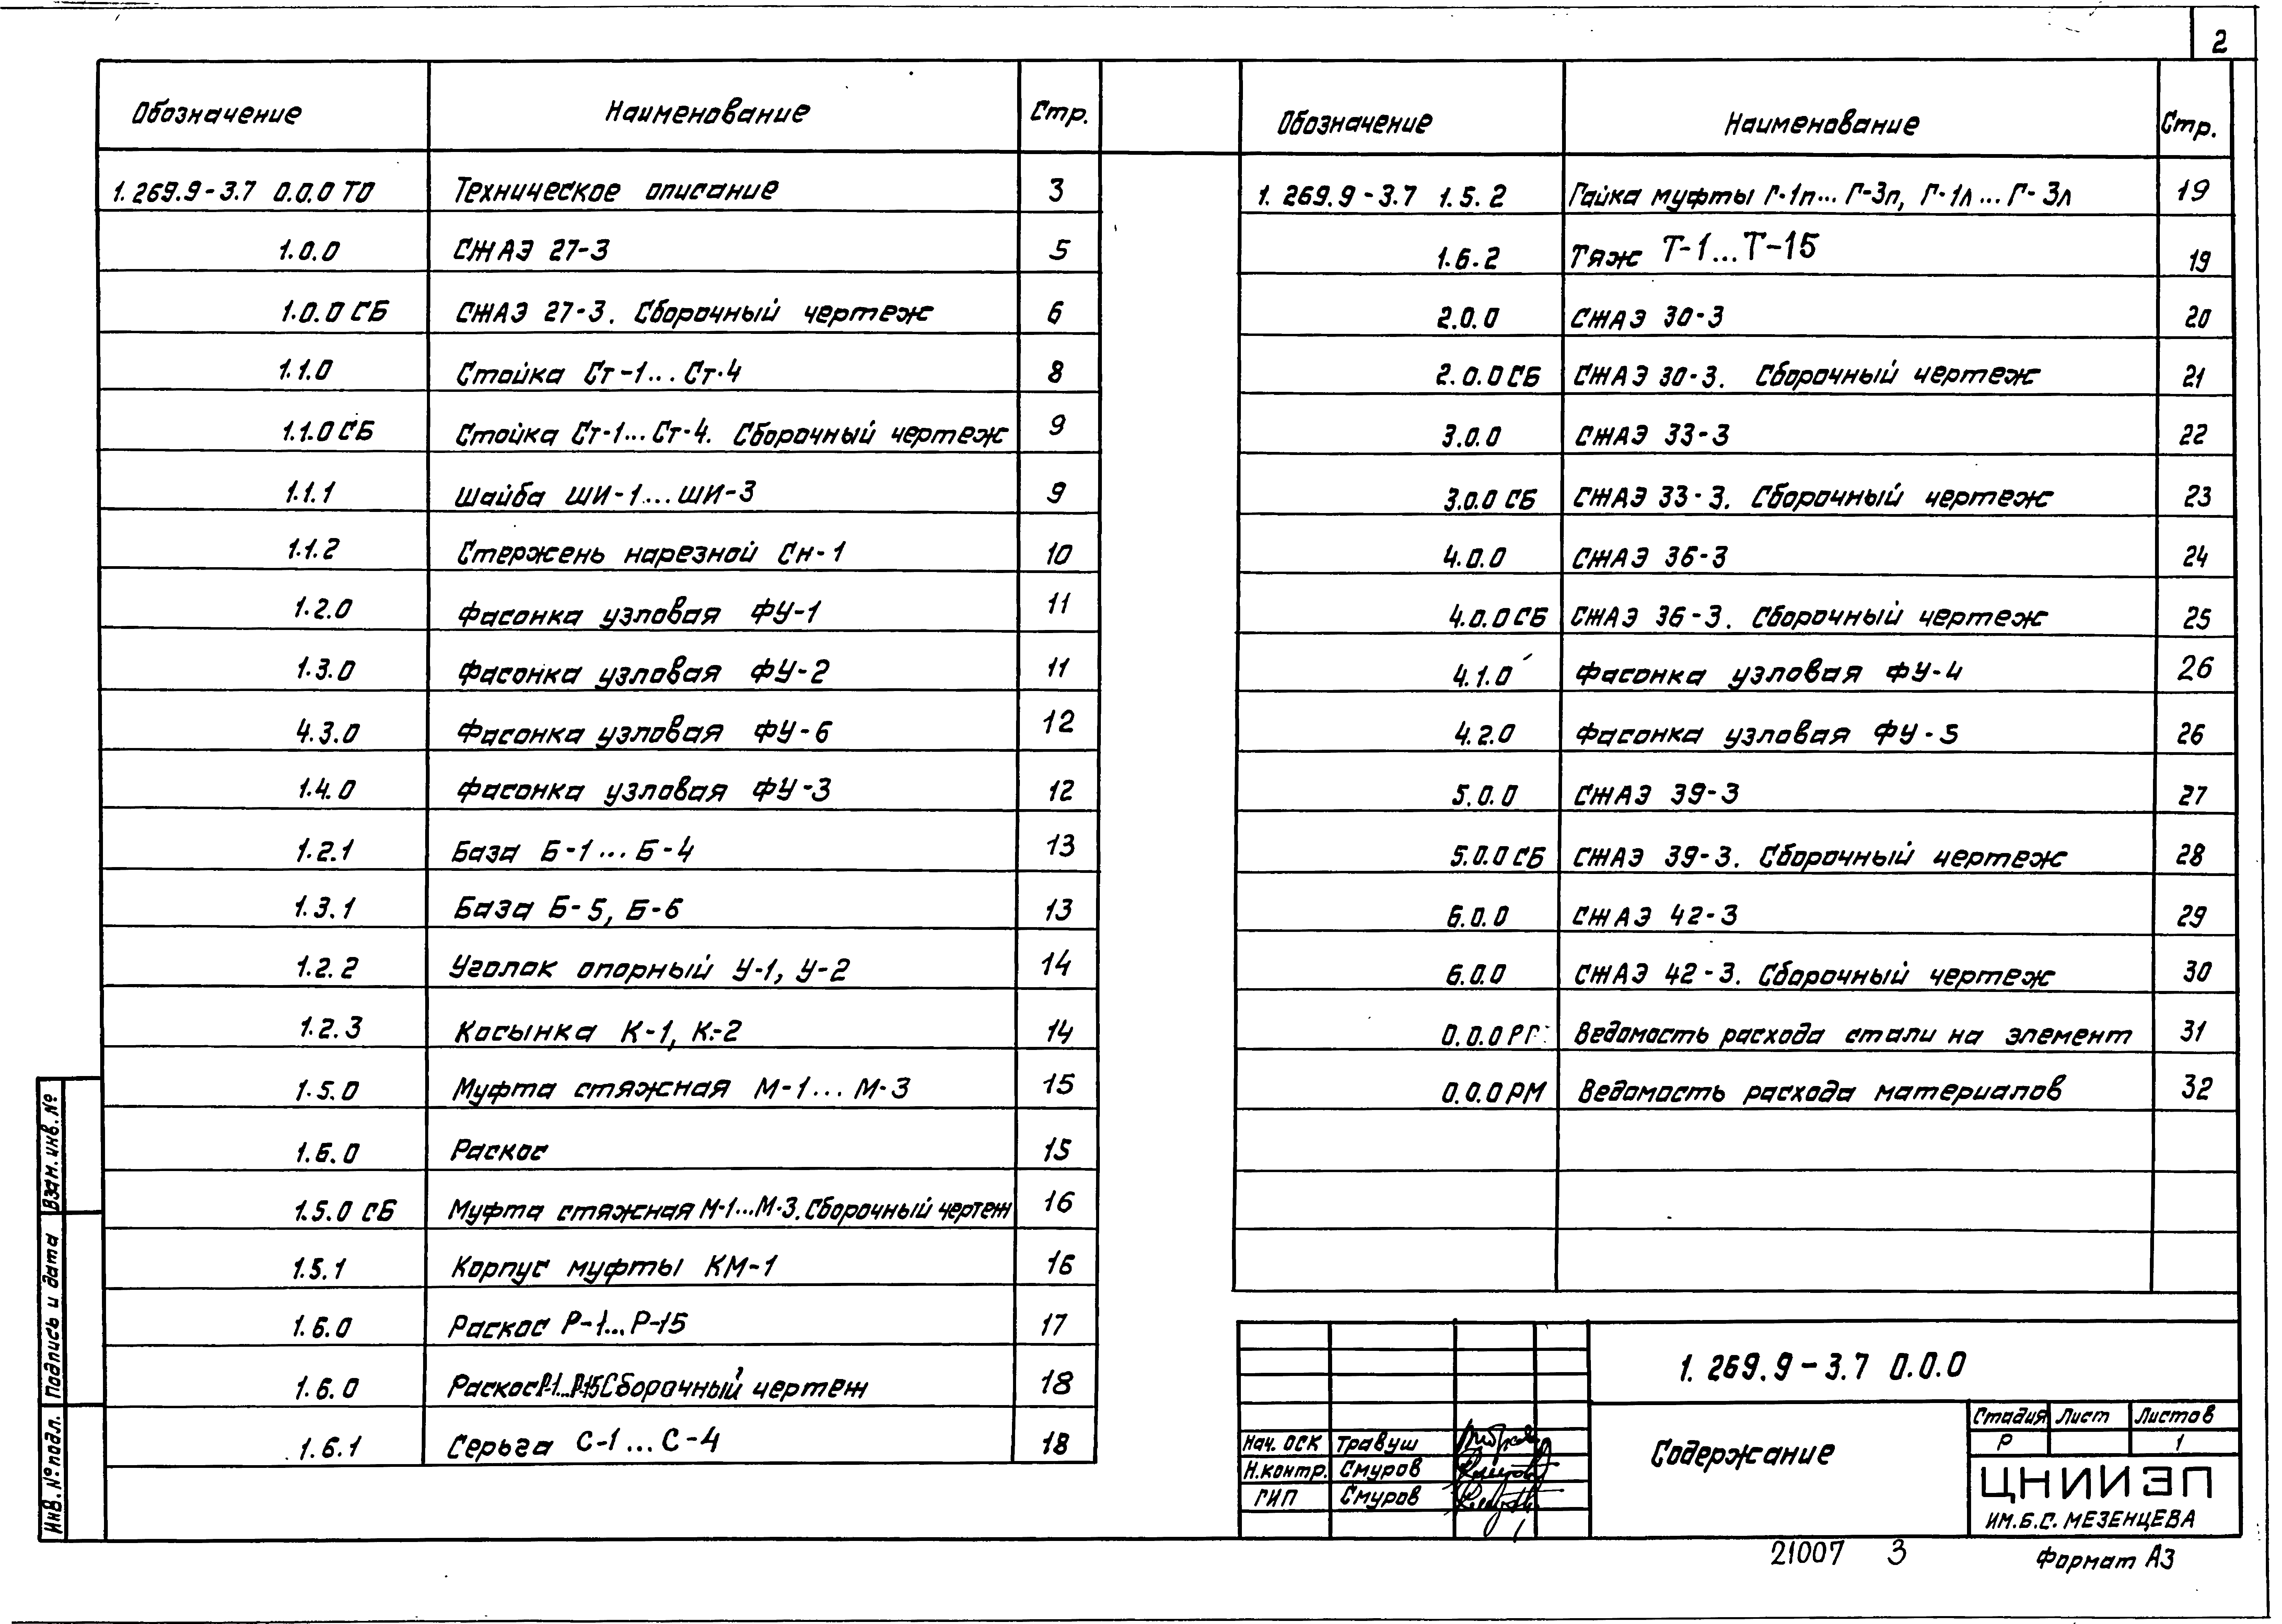 2
Обозначение Наименование Стр.
1.269.9-3.7 0.0.0 ТО Техническое описание 3
1.0.0 СЖАЭ 27-3 5
1.0.0 СБ СЖАЭ 27-3. Сборочный чертеж 6
1.1.0 Стойка Ст-1...Ст-4 8
1.1.0 СБ Стойка Ст-1...Ст-4. Сборочный чертеж 9
1.1.1 Шайба ШИ-1...ШИ-3 9
1.1.2 Стержень нарезной Сн-1 10
1.2.0 Фасонка узловая ФУ-1 11
1.3.0 Фасонка узловая ФУ-2 11
4.3.0 Фасонка узловая ФУ-6 12
1.4.0 Фасонка узловая ФУ-3 12
1.2.1 База Б-1...Б-4 13
1.3.1 База Б-5, Б-6 13
1.2.2 Уголок опорный У-1, У-2 14
1.2.3 Косынка К-1, К-2 14
1.5.0 Муфта стяжная М-1...М-3 15
1.6.0 Раскос 15
1.5.0 СБ Муфта стяжная М-1...М-3. Сборочный чертеж 16
1.5.1 Корпус муфты КМ-1 16
1.6.0 Раскос Р-1...Р-15 17
1.6.0 Раскос Р-1...Р-15 Сборочный чертеж 18
1.6.1 Серьга С-1...С-4 18
Обозначение Наименование Стр.
1.269.9-3.7 1.5.2 Гайка муфты Г-1п...Г-3п, Г-1л...Г-3л 19
1.6.2 Тяж Т-1...Т-15 19
2.0.0 СЖАЭ 30-3 20
2.0.0 СБ СЖАЭ 30-3. Сборочный чертеж 21
3.0.0 СЖАЭ 33-3 22
3.0.0 СБ СЖАЭ 33-3. Сборочный чертеж 23
4.0.0 СЖАЭ 36-3 24
4.0.0 СБ СЖАЭ 36-3. Сборочный чертеж 25
4.1.0 Фасонка узловая ФУ-4 26
4.2.0 Фасонка узловая ФУ-5 26
5.0.0 СЖАЭ 39-3 27
5.0.0 СБ СЖАЭ 39-3. Сборочный чертеж 28
6.0.0 СЖАЭ 42-3 29
6.0.0 СЖАЭ 42-3. Сборочный чертеж 30
0.0.0 Ведомость расхода стали на элемент 31
0.0.0 РМ Ведомость расхода материалов 32
Взам. инв. №
Подпись и дата
Инв. № подл.
1.269.9-3.7 0.0.0
Содержание
Стадия Лист Листов
Р 1
Нач. ОСК Травуш
Н.контр. Смуров
ГИП Смуров
ЦНИИЭП
ИМ. Б.С. МЕЗЕНЦЕВА
21007 3
Формат А3